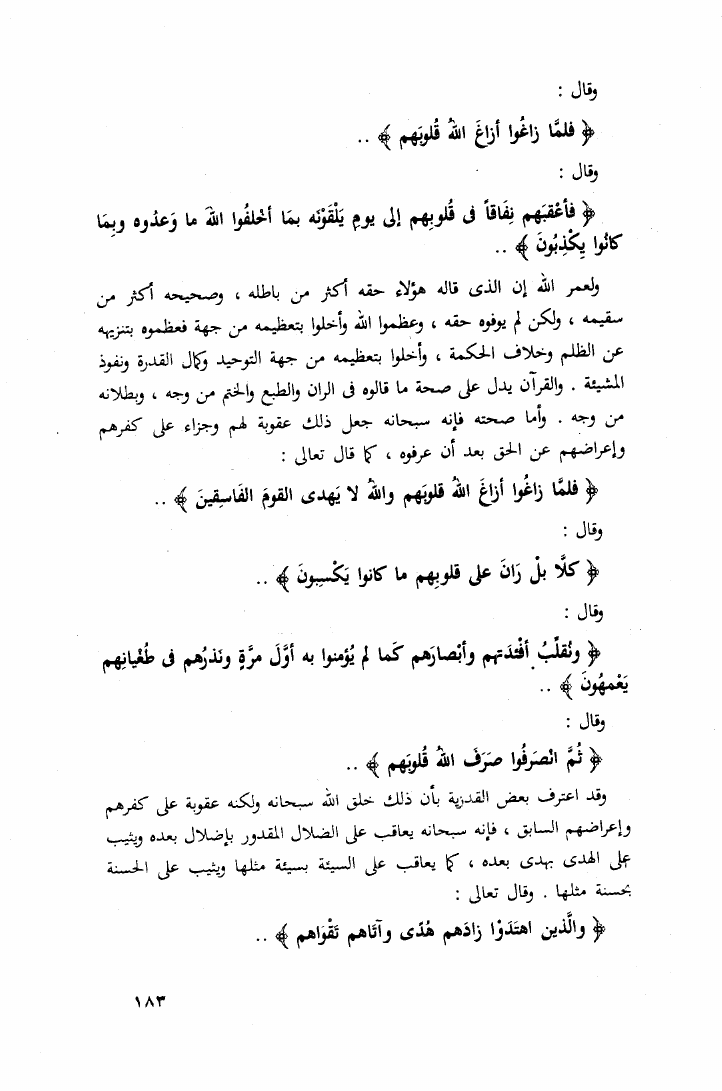 وقال :
﴿ فلمَّا زاغُوا أزاغَ اللهُ قُلوبَهم ﴾ ..
وقال :
﴿ فأعْقبَهم نِفَاقاً فى قُلوبِهم إلى يومِ يَلْقَوْنَه بمَا أخْلفُوا اللهَ ما وَعدُوه وبِمَا
كانُوا يكْذِبُونَ ﴾ ..
ولعمر الله إن الذى قاله هؤلاء حقه أكثر من باطله ، وصحيحه أكثر من
سقيمه ، ولكن لم يوفوه حقه ، وعظموا الله وأخلوا بتعظيمه من جهة فعظموه بتنزيهه
عن الظلم وخلاف الحكمة ، وأخلوا بتعظيمه من جهة التوحيد وكمال القدرة ونفوذ
المشيئة . والقرآن يدل على صحة ما قالوه فى الران والطبع والختم من وجه ، وبطلانه
من وجه . وأما صحته فإنه سبحانه جعل ذلك عقوبة لهم وجزاء على كفرهم
وإعراضهم عن الحق بعد أن عرفوه ، كما قال تعالى :
﴿ فلمَّا زاغُوا أزاغَ اللهُ قلوبَهم واللهُ لا يَهدى القومَ الفَاسِقينَ ﴾ ..
وقال :
﴿ كلَّا بلْ رَانَ على قلوبِهم ما كانوا يَكْسِبونَ ﴾ ..
وقال :
﴿ ونُقلِّبُ أفْئدَتهم وأبْصارَهم كَما لم يُؤمنوا به أوَّلَ مرَّةٍ ونَذرُهم فى طُغْيانِهم
يَعْمهُونَ ﴾ ..
وقال :
﴿ ثُمَّ انْصَرفُوا صَرَفَ اللهُ قُلوبَهم ﴾ ..
وقد اعترف بعض القدرية بأن ذلك خلق الله سبحانه ولكنه عقوبة على كفرهم
وإعراضهم السابق ، فإنه سبحانه يعاقب على الضلال المقدور بإضلال بعده ويثيب
على الهدى بهدى بعده ، كما يعاقب على السيئة بسيئة مثلها ويثيب على الحسنة
بحسنة مثلها . وقال تعالى :
﴿ والَّذين اهتَدَوْا زادَهم هُدًى وآتَاهم تَقْوَاهم ﴾ ..
١٨٣